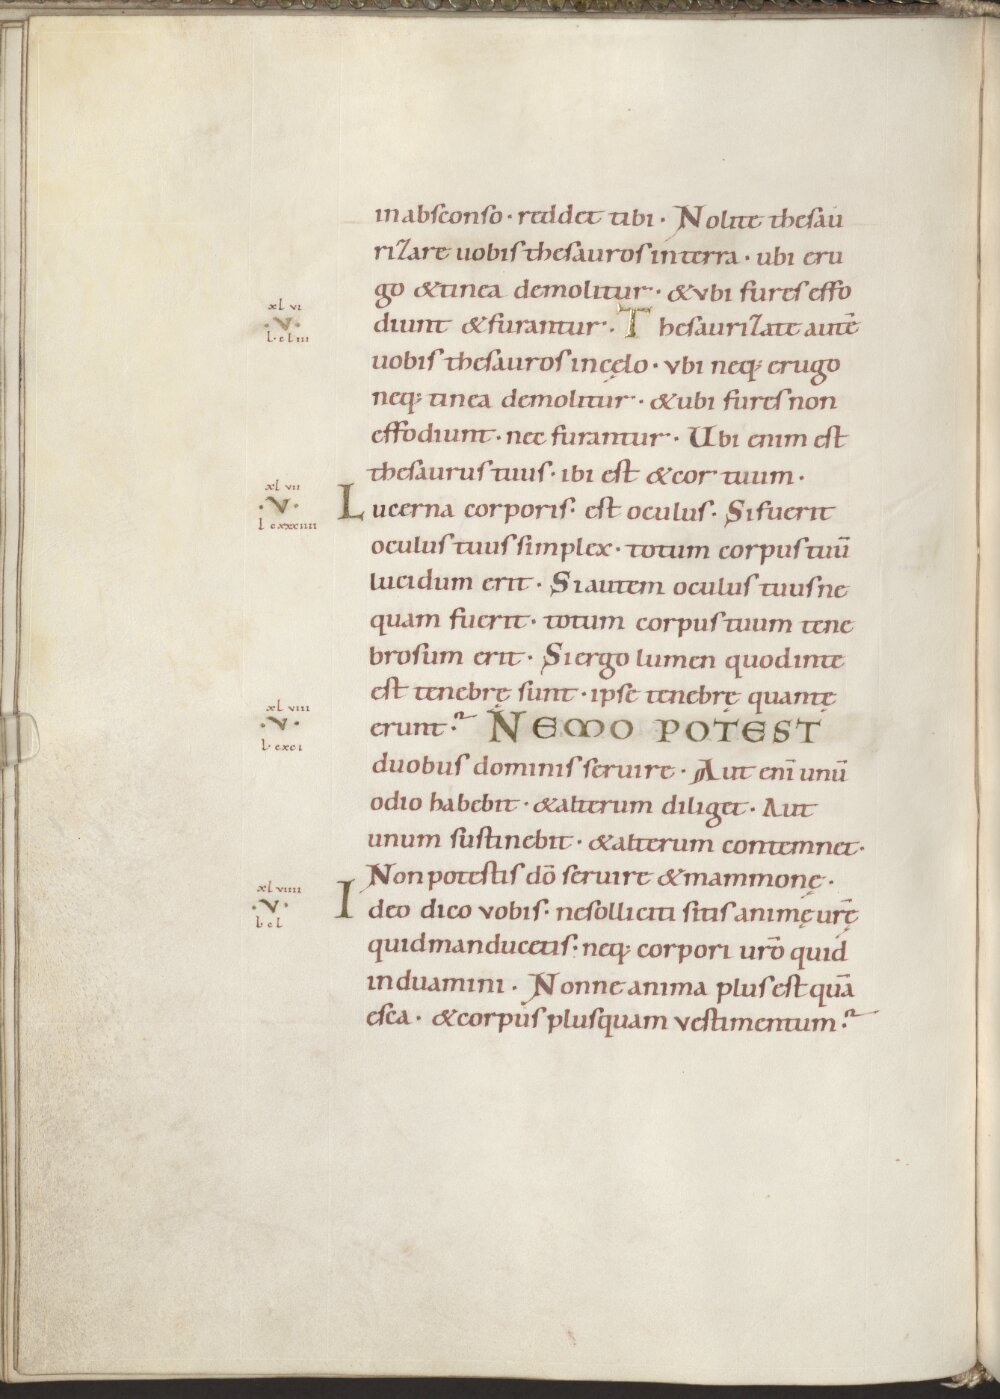 inabsconso · reddet tibi · Nolite thesau
rizare uobis thesauros interra · ubi eru
go &tinea demolitur · &vbi fures effo
xl vi
·V·
L· cliii
diunt &furantur · Thesaurizate autē
uobis thesauros incęlo · vbi neq; erugo
neq; tinea demolitur · &ubi fures non
effodiunt · nec furantur · Ubi enim est
thesaurus tuus · ibi est &cor tuum ·
xl vii
·V·
L cxxxiiii
Lucerna corporis · est oculus · Sifuerit
oculus tuus simplex · totum corpus tuū
lucidum erit · Siautem oculus tuus ne
quam fuerit · totum corpus tuum tene
brosum erit · Siergo lumen quod inte
est tenebrę sunt · ipse tenebrę quantę
xl viii
·V·
L· cxci
erunt? NEMO POTEST
duobus dominis seruire · Aut eni̅ unū
odio habebit · &alterum diliget · Aut
unum sustinebit · &alterum contemnet ·
Non potestis dō seruire &mammonę ·
xl viiii
·V·
L· cl
Ideo dico vobis · nesolliciti sitis animę urę̄
quid manducetis · neq; corpori urō quid
induamini · Nonne anima plus est quā
esca · &corpus plusquam vestimentum?